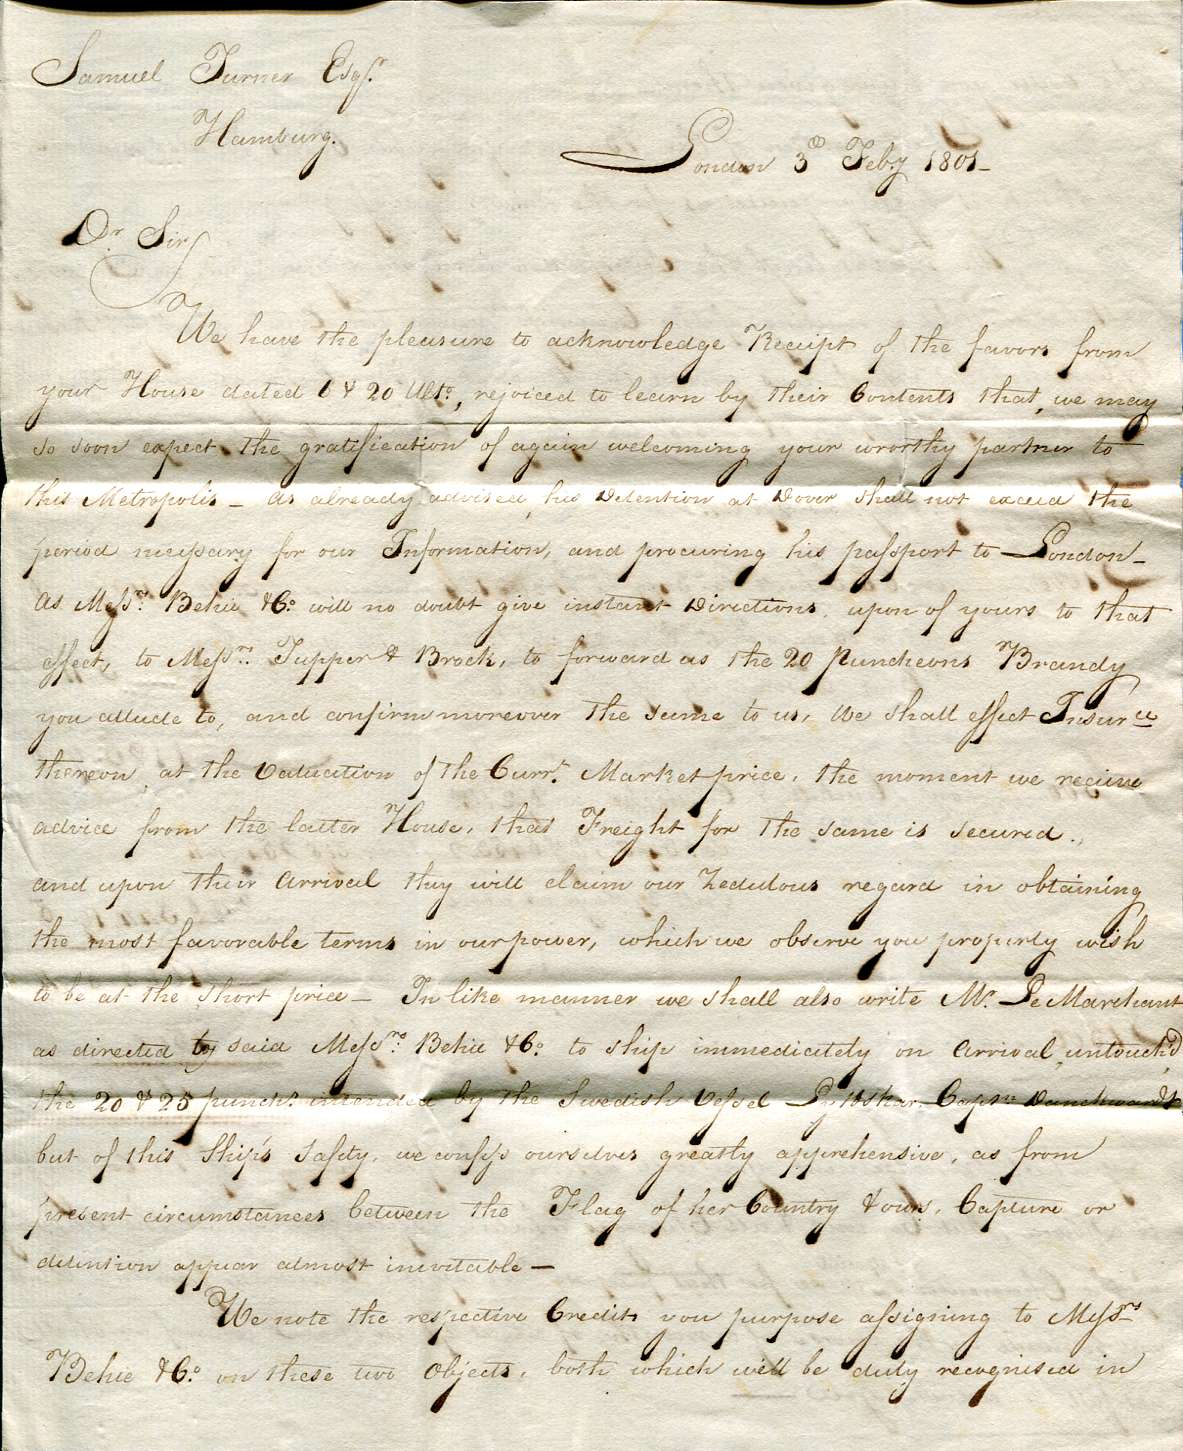 Samuel Turner Esqr.
Hamburg.
London 3d Feby 1801_
Dr. Sir
We have the pleasure to acknowledge Receipt of the favors from
your House dated 6 & 20 Ulto., rejoiced to learn by their Contents that, we may
so soon expect the gratification of again welcoming your worthy partner to
this Metropolis _ As already advised, his Detention at Dover shall not exceed the
period necessary for our Information, and procuring his passport to London_
As Messrs. Behie & Co. will no doubt give instant Directions, upon of yours to that
effect, to Messrs. Tupper & Brock, to forward as the 20 Puncheons Brandy
you allude to, and confirm moreover the same to us, We shall effect Insurce
thereon, at the Valuation of the Currt. Market price, the moment we recieve
advice from the latter House, that Freight for the same is secured.,
and upon their Arrival they will claim our Zedulous regard in obtaining
the most favorable terms in our power, which we observe you properly wish
to be at the short price _ In like manner we shall also write Mr. Le Marchant
as directed by said Messrs. Behie & Co. to ship immediately on Arrival, untouch'd
the 20 & 25 punchs. intended by the Swedish Vessel Captn.
but of this Ship's Safety, we confess ourselves greatly apprehensive, as from
present circumstances between the Flag of her Country & ours, Capture or
detention appear almost inevitable _
We note the respective Credits you purpose assigning to Messrs
Behie & Co. on these two Objects, both which will be duly recognised in